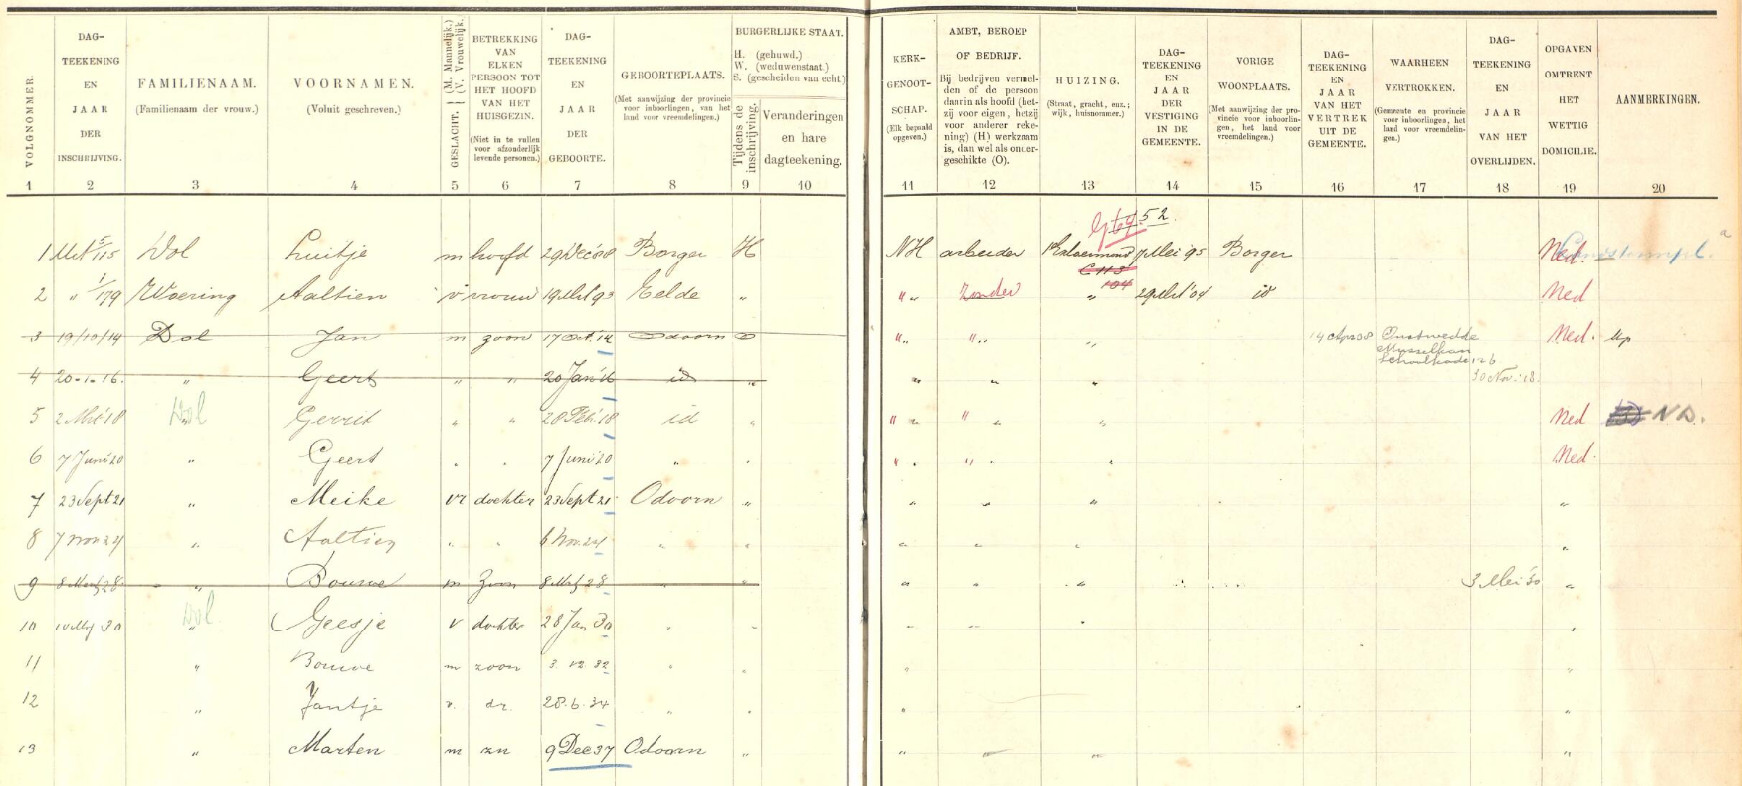 VOLGNOMMER.
DAG-
TEEKENING
EN
JAAR
DER
INSCHRIJVING.
FAMILIENAAM.
(Familienaam der vrouw.)
VOORNAMEN.
(Voluit geschreven.)
GESLACHT. (M. Mannelijk.) (V. Vrouwelijk.)
BETREKKING
VAN
ELKEN
PERSOON TOT
HET HOOFD
VAN HET
HUISGEZIN.
(Niet in te vullen
voor afzonderlijk
levende personen.)
DAG-
TEEKENING
EN
JAAR
DER
GEBOORTE.
GEBOORTEPLAATS.
(Met aanwijzing der provincie
voor inboorlingen, van het
land voor vreemdelingen.)
BURGERLIJKE STAAT.
H. (gehuwd.)
W. (weduwenstaat.)
S. (gescheiden van echt.)
Tijdens de
inschrijving.
Veranderingen
en hare
dagteekening.
KERK-
GENOOT-
SCHAP.
(Elk bepaald
opgeven.)
AMBT, BEROEP
OF BEDRIJF.
Bij bedrijven vermel-
den of de persoon
daarin als hoofd (het-
zij voor eigen, hetzij
voor anderer reke-
ning) (H) werkzaam
is, dan wel als onder-
geschikte (O).
HUIZING.
(Straat, gracht, enz.;
wijk, huisnommer.)
DAG-
TEEKENING
EN
JAAR
DER
VESTIGING
IN DE
GEMEENTE.
VORIGE
WOONPLAATS.
(Met aanwijzing der pro-
vincie voor inboorlin-
gen, het land voor
vreemdelingen.)
DAG-
TEEKENING
EN
JAAR
VAN HET
VERTREK
UIT DE
GEMEENTE.
WAARHEEN
VERTROKKEN.
(Gemeente en provincie
voor inboorlingen, het
land voor vreemdelin-
gen.)
DAG-
TEEKENING
EN
JAAR
VAN HET
OVERLIJDEN.
OPGAVEN
OMTRENT
HET
WETTIG
DOMICILIE.
AANMERKINGEN.
1 2 3 4 5 6 7 8 9 10 11 12 13 14 15 16 17 18 19 20
52
1 Dol Luitje m hoofd 29 Dec '88 Borger H NH arbeider 7 Mei '95 Borger Ned.
C 113
104
2 " 1/179 Woering Aaltien v vrouw Eelde " " " Zonder " id Ned
3 19/10/14 Dol Jan m zoon 17 Oct. '14 Odoorn " " " " Onstwedde Ned.
Musselkan
126
4 20-1-16. " Geert " " 20 Jan '16 id " " " " 30 Nov. '18.
5 Dol Gerrit " " 28 Feb. '18 id " " " " " " Ned N.D.
6 7 Juni '20 " Geert " " 7 Juni '20 " " " " " " " Ned.
7 23 Sept 21 " Meike vr dochter 23 Sept 21 Odoorn " " " " "
8 7 Nov 24 " Aaltien " " 6 Nov. 24 " " " " " "
9 " Bouwe m zoon " " " " " 3 Mei '30 "
10 Dol Geesje v dochter 28 Jan 30 " " " " "
11 " Bouwe m zoon 3. 12. 32 " " " "
12 " Jantje v. dr. 28.6.34 " " " "
13 " Marten m zn 9 Dec 37 Odoorn " " " " "